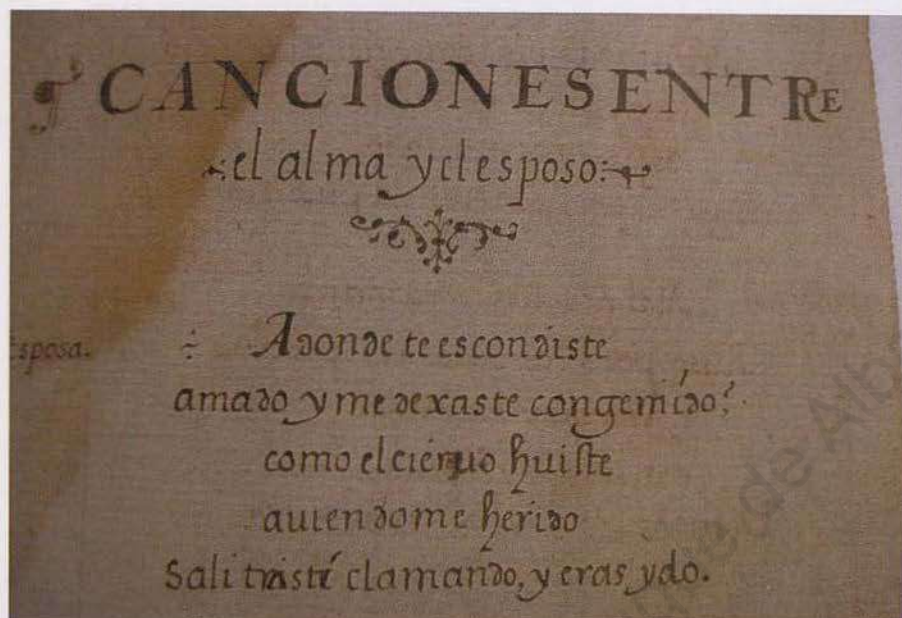 CANCIONES ENTRE
el alma y el esposo
sposa. Adonde te escondiste
amado y me dexaste con gemido?
como el cieruo huiste
auiendome herido
Sali clamando, y eras ydo.
de Alb